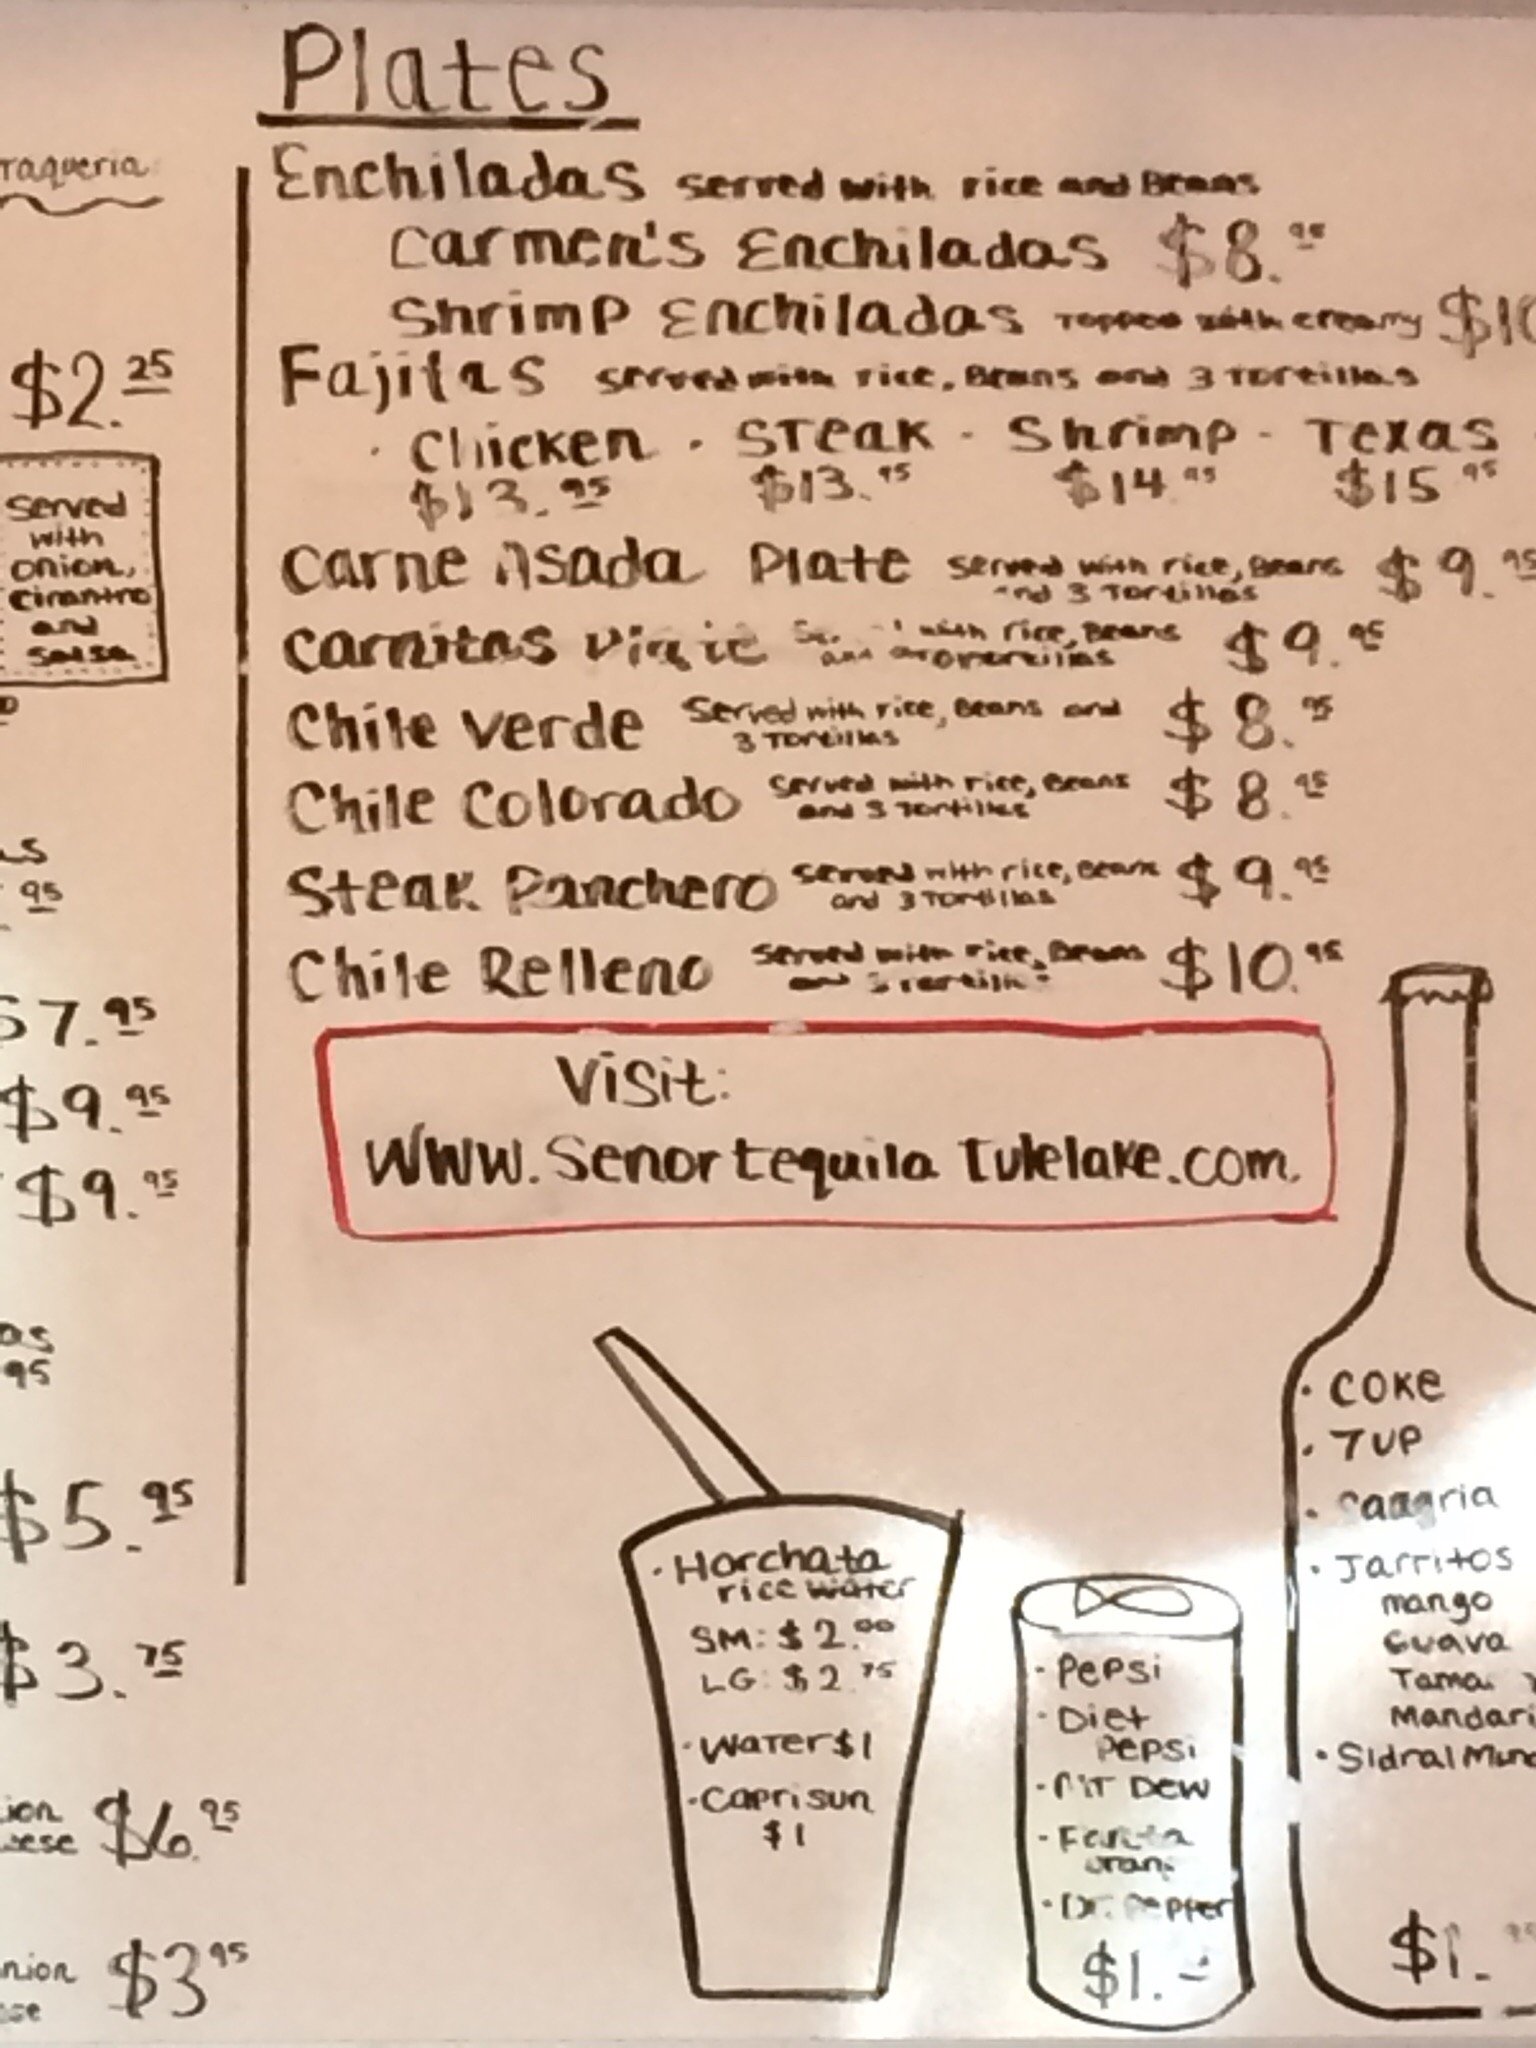 Plates
Taqueria
Enchiladas served with rice and Beans
Carmen's Enchiladas $8.95
Shrimp Enchiladas Topped with creamy $10
Fajitas served with rice, Beans and 3 Tortillas
· Chicken · Steak · Shrimp · Texas
$13.95 $13.95 $14.95 $15.95
Carne Asada Plate served with rice, Beans $9.95
and 3 Tortillas
Carnitas with rice, Beans $9.95
and
Chile Verde served with rice, Beans and $8.95
3 Tortillas
Chile Colorado served with rice, Beans $8.95
and 3 Tortillas
Steak Ranchero served with rice, Beans $9.95
and 3 Tortillas
Chile Relleno served with rice, Beans $10.95
and 3
Visit:
www.SenortequilaTulelake.com.
$2.25
served
with
onion,
cilantro
and
salsa
95
$7.95
$9.95
$9.95
95
$5.95
$3.75
$6.95
$3.95
· Horchata
rice water
SM: $2.00
LG: $2.75
· Water $1
· Caprisun
$1
· Pepsi
· Diet
Pepsi
· MT Dew
· Fanta
· Dr. Pepper
$1.
· Coke
· 7UP
· Jarritos
mango
Guava
Mandari
· Sidral Mun
$1.